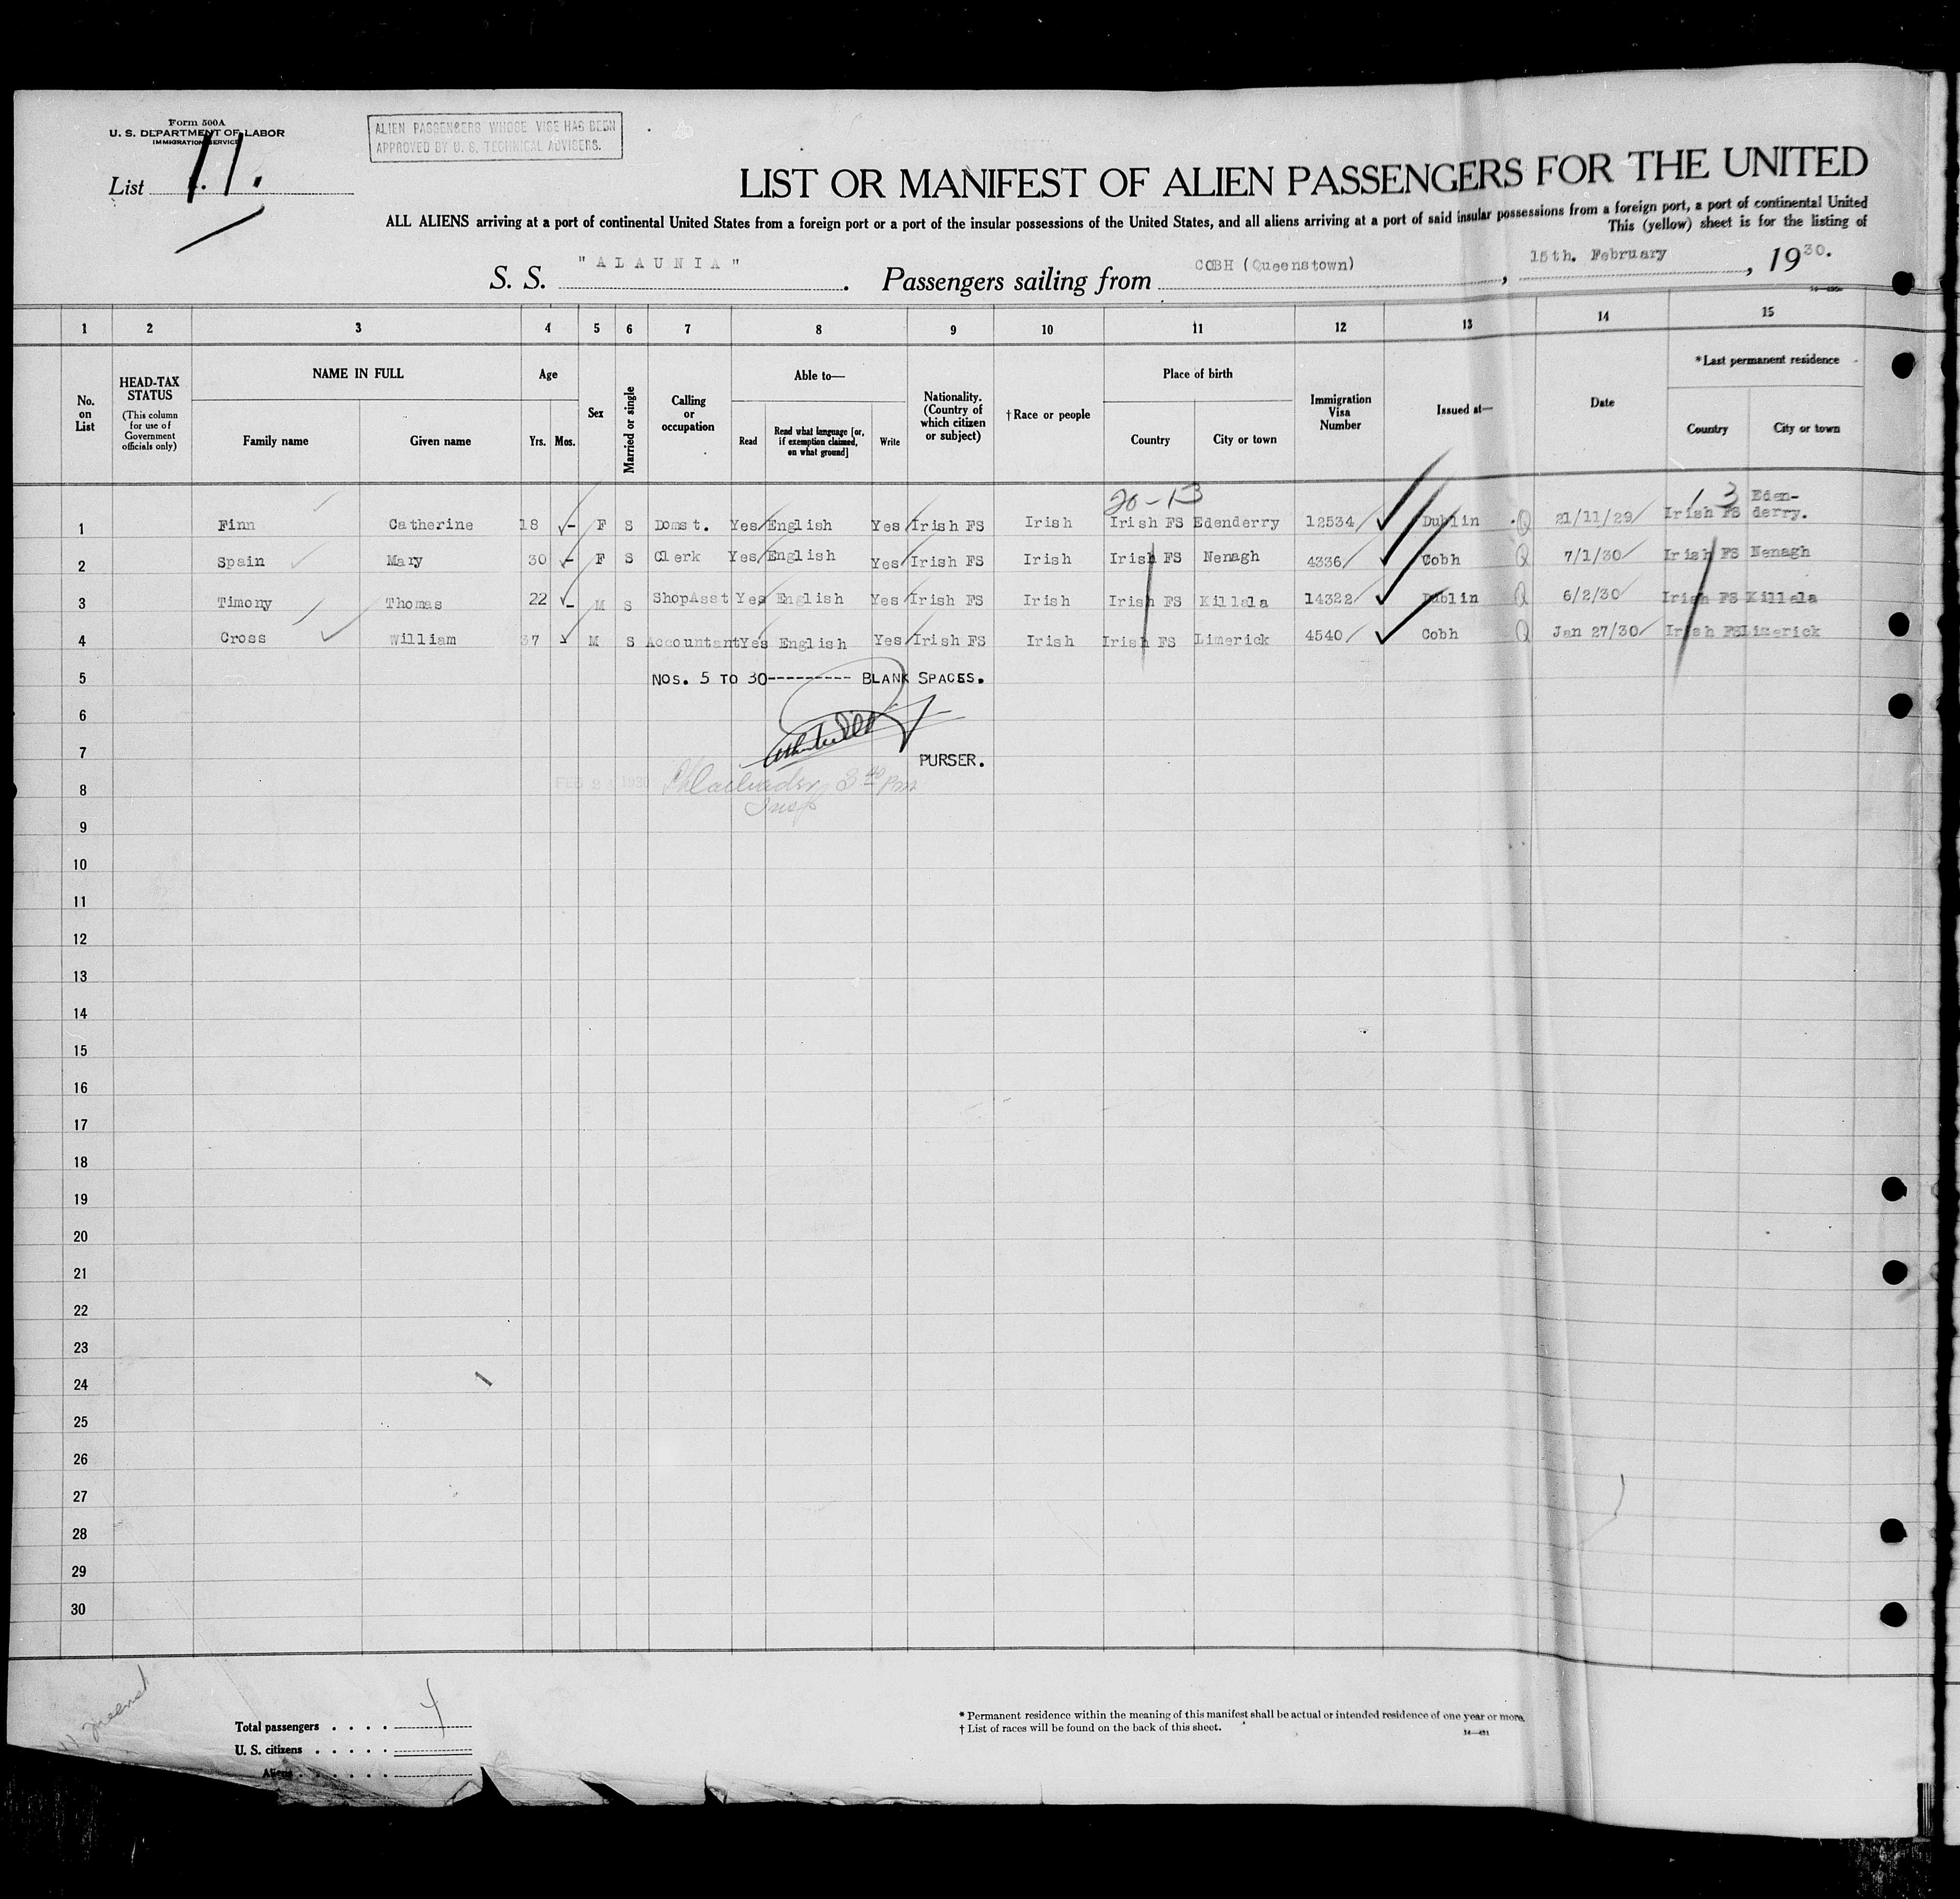 Form 500A
U. S. DEPARTMENT OF LABOR
IMMIGRATION SERVICE
ALIEN PASSENGERS WHOSE VISE HAS BEEN
APPROVED BY U. S. TECHNICAL ADVISERS.
List 11.
LIST OR MANIFEST OF ALIEN PASSENGERS FOR THE UNITED
ALL ALIENS arriving at a port of continental United States from a foreign port or a port of the insular possessions of the United States, and all aliens arriving at a port of said insular possessions from a foreign port, a port of continental United
This (yellow) sheet is for the listing of
S. S. "ALAUNIA". Passengers sailing from COBH (Queenstown), 15th. February, 1930.
1 2 3 4 5 6 7 8 9 10 11 12 13 14 15
No. on List
HEAD-TAX STATUS (This column for use of Government officials only)
NAME IN FULL
Family name Given name
Age
Yrs. Mos.
Sex
Married or single
Calling or occupation
Able to—
Read Read what language [or, if exemption claimed, on what ground] Write
Nationality. (Country of which citizen or subject)
†Race or people
Place of birth
Country City or town
Immigration Visa Number
Issued at—
Date
*Last permanent residence
Country City or town
20-13
13
1 Finn Catherine 18 - F S Domst. Yes English Yes Irish FS Irish Irish FS Edenderry 12534 Dublin Q 21/11/29 Irish FS Eden-derry.
2 Spain Mary 30 - F S Clerk Yes English Yes Irish FS Irish Irish FS Nenagh 4336 Cobh Q 7/1/30 Irish FS Nenagh
3 Timony Thomas 22 - M S ShopAsst Yes English Yes Irish FS Irish Irish FS Killala 14322 Dublin Q 6/2/30 Irish FS Killala
4 Cross William 37 M S Accountant Yes English Yes Irish FS Irish Irish FS Limerick 4540 Cobh Q Jan 27/30 Irish FS Limerick
5 NOS. 5 TO 30---------- BLANK SPACES.
6
7 PURSER.
8
Insp
9
10
11
12
13
14
15
16
17
18
19
20
21
22
23
24
25
26
27
28
29
30
Total passengers . . . . 4
U. S. citizens . . . . .
Aliens . . . . . .
* Permanent residence within the meaning of this manifest shall be actual or intended residence of one year or more.
† List of races will be found on the back of this sheet.